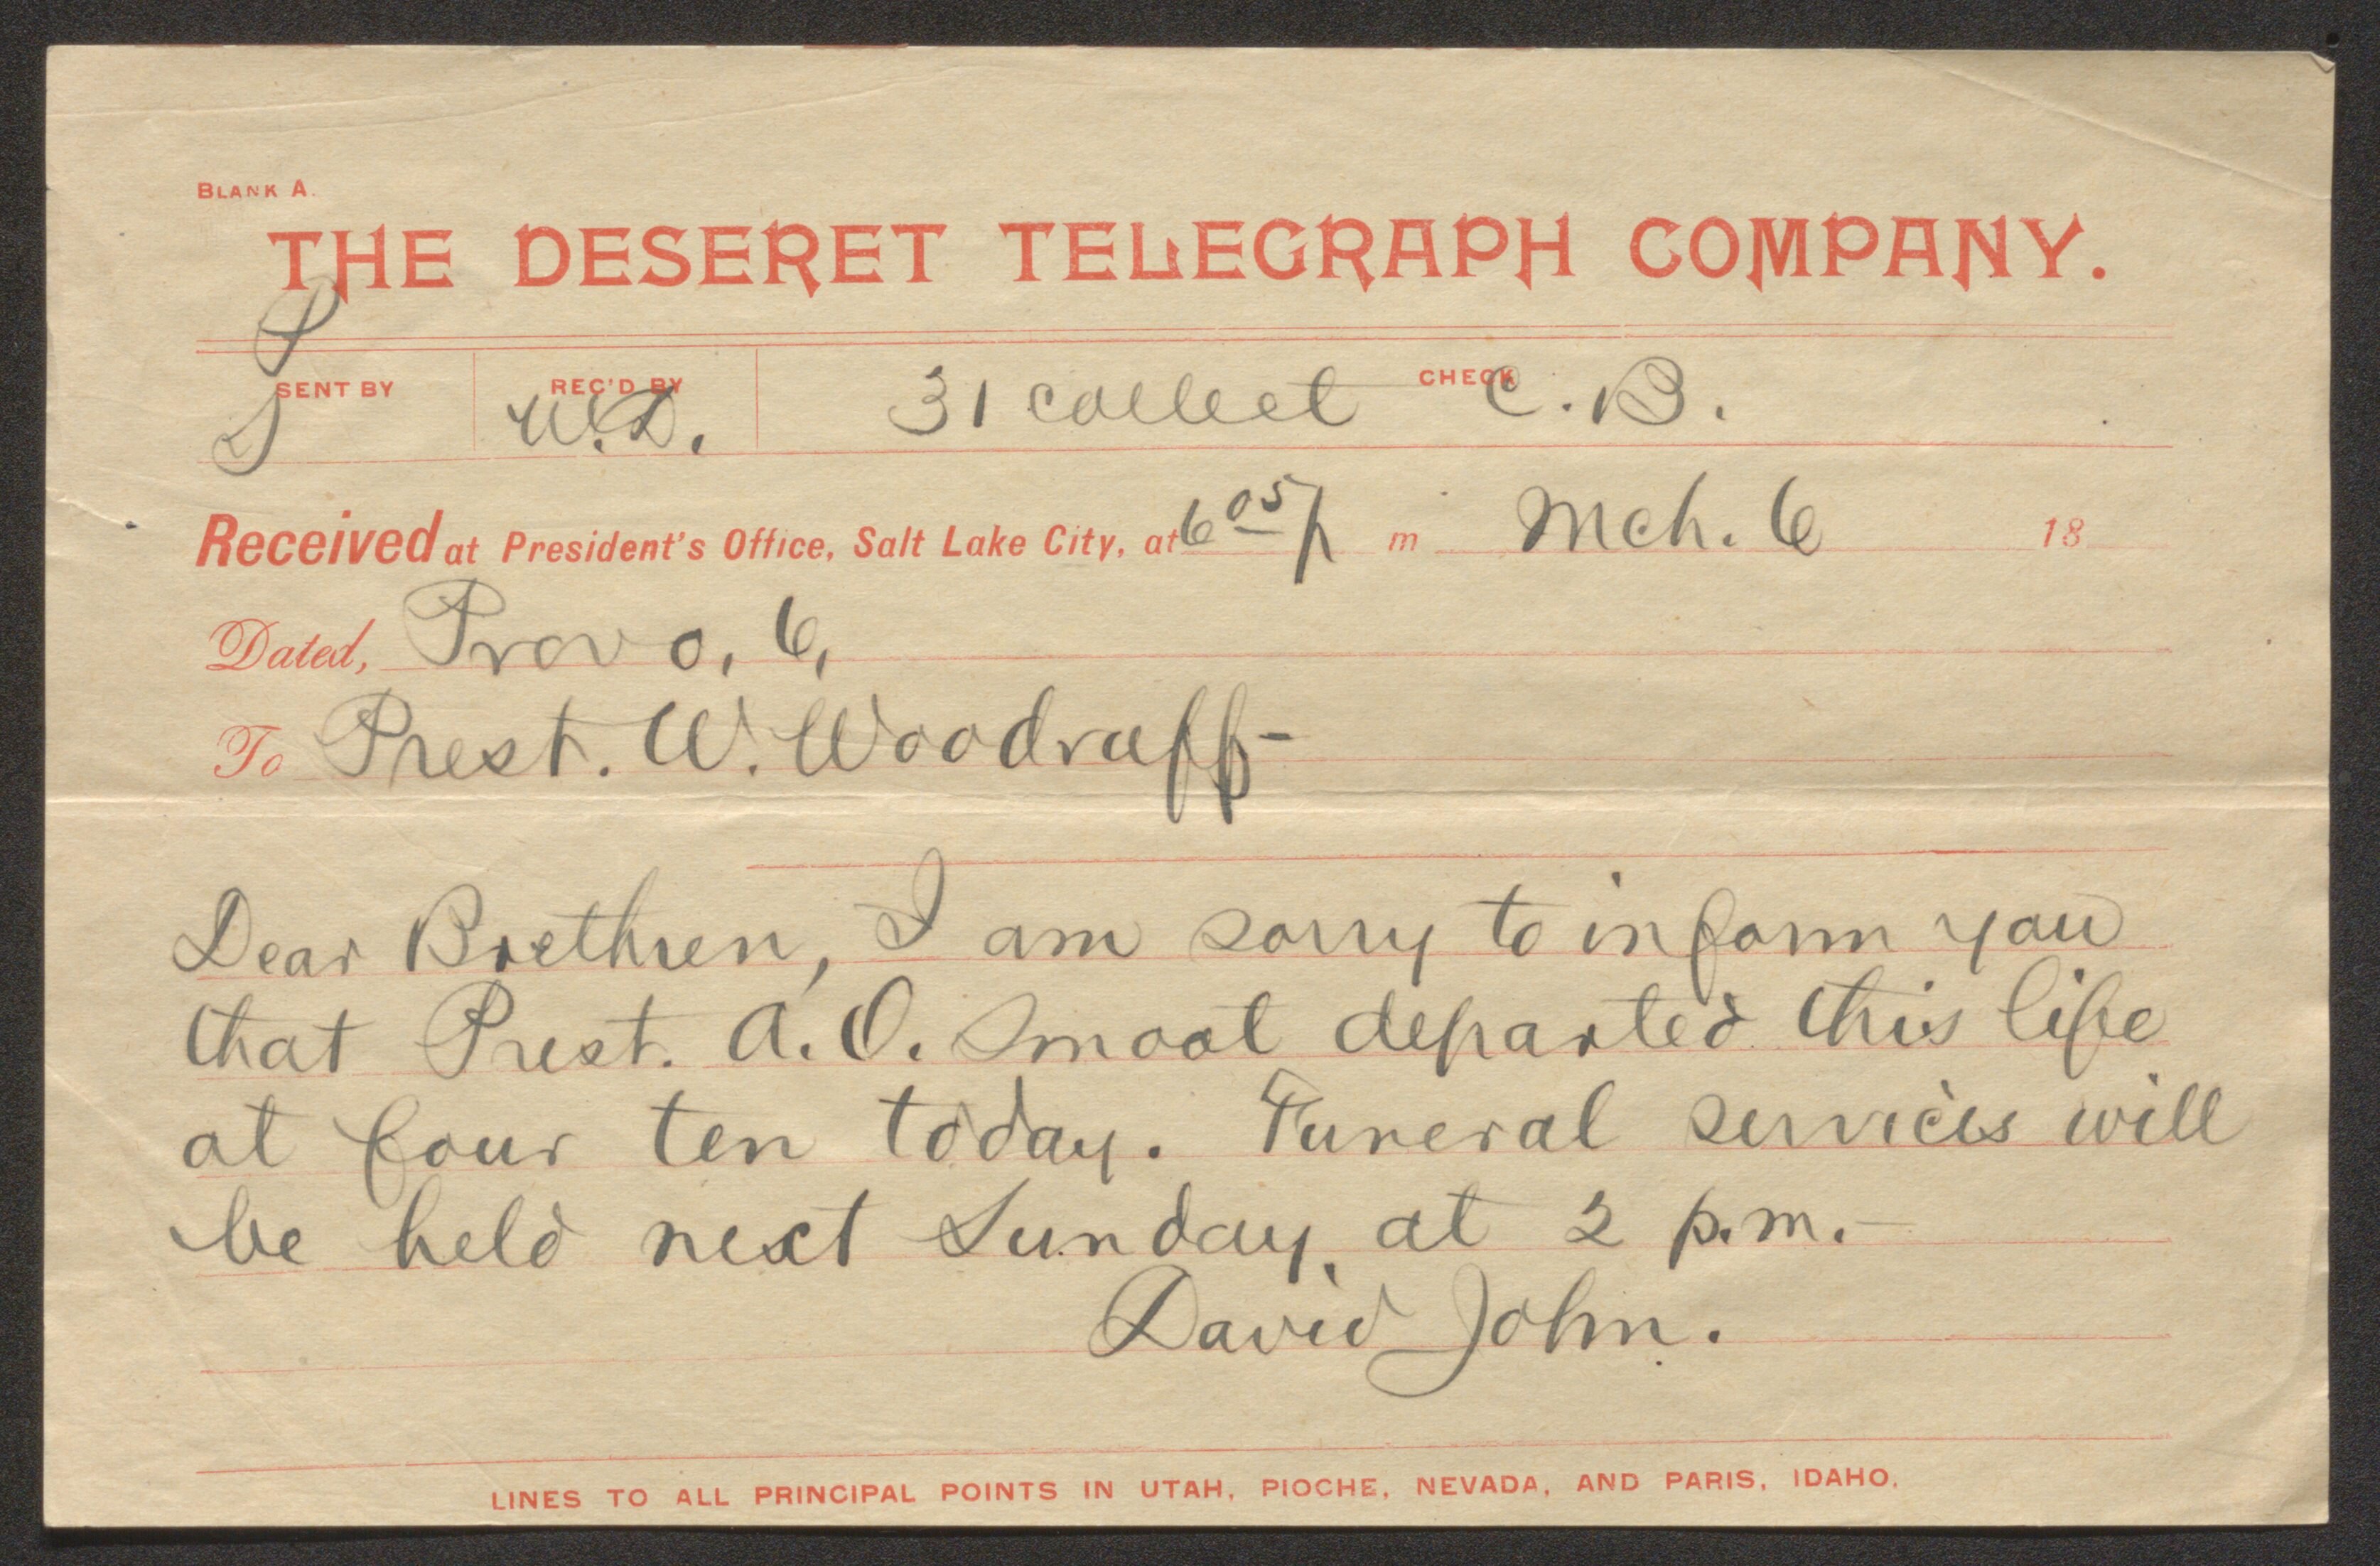 BLANK A.
THE DESERET TELEGRAPH COMPANY.
SENT BY REC'D BY CHECK
W.D. 31 collect C. B.
Received at President's Office, Salt Lake City, at 6 05 p m Mch. 6 18
Dated, Provo, 6,
To Prest. W. Woodruff-
Dear Brethren, I am sorry to inform you
that Prest. A. O. Smoot departed this life
at four ten today. Funeral services will
be held next Sunday, at 2 p.m.—
David John.
LINES TO ALL PRINCIPAL POINTS IN UTAH, PIOCHE, NEVADA, AND PARIS, IDAHO.